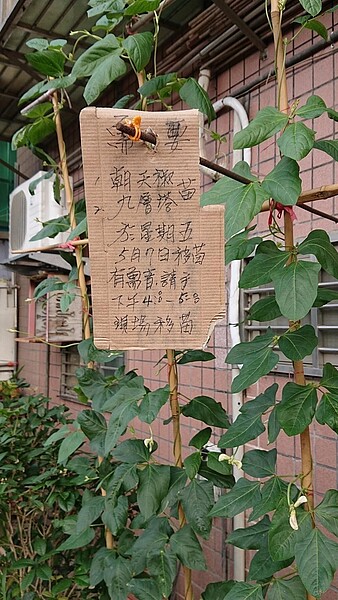 需要
1. 朝天椒苗
2. 九層塔
於星期五
5月7日移苗
有需要請于
下午4:00-5:00
現場移苗